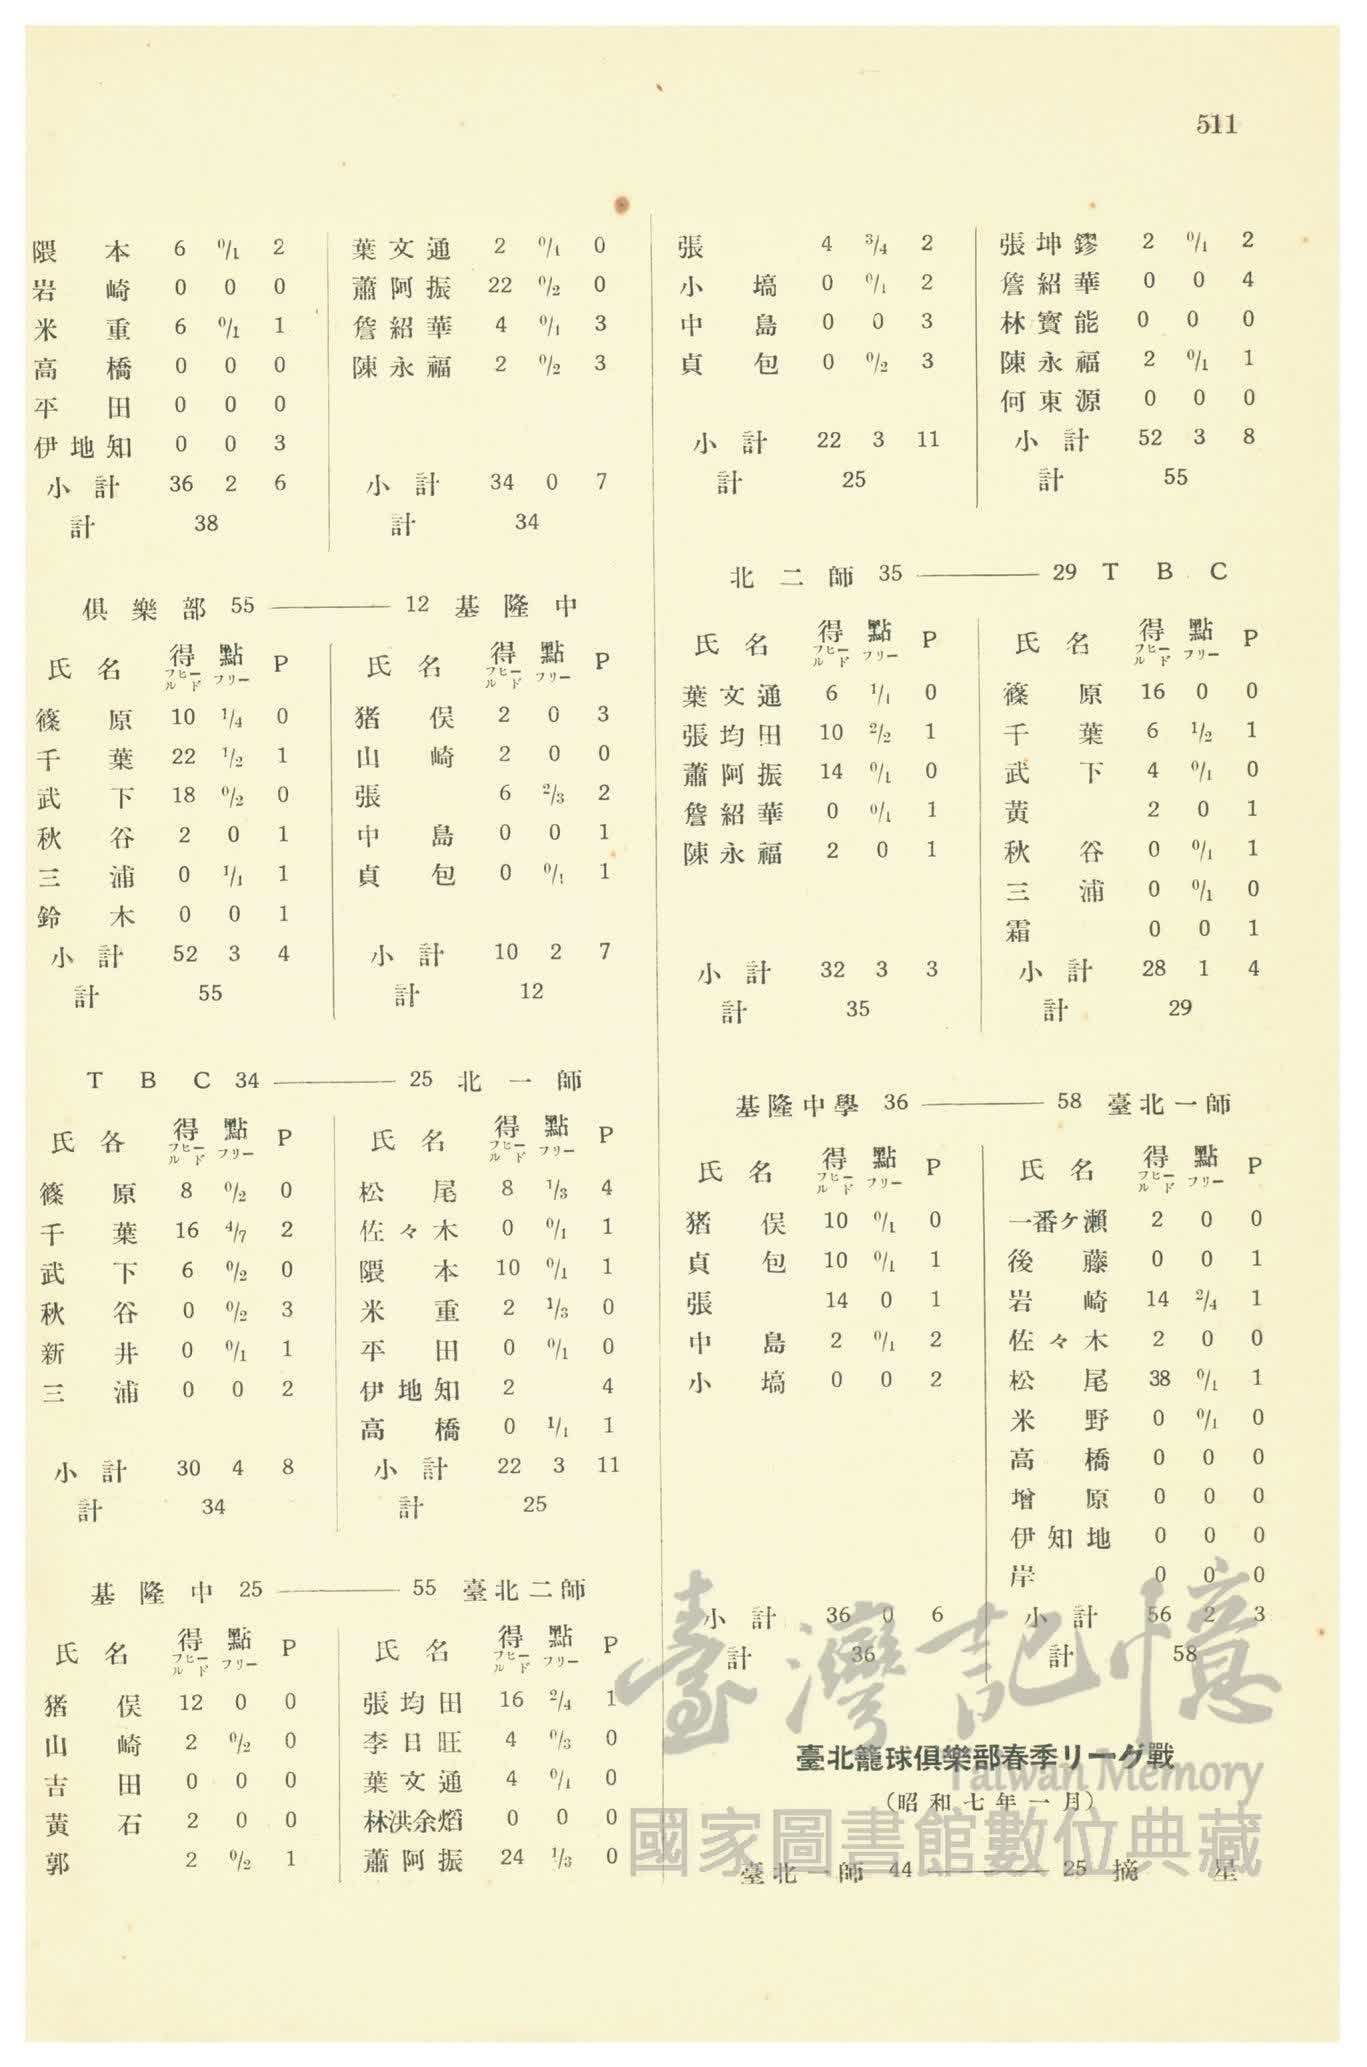 511
隈本 6 0/1 2
岩崎 0 0 0
米重 6 0/1 1
高橋 0 0 0
平田 0 0 0
伊地知 0 0 3
小計 36 2 6
計 38
葉文通 2 0/1 0
蕭阿振 22 0/2 0
詹紹華 4 0/1 3
陳永福 2 0/2 3
小計 34 0 7
計 34
俱樂部 55 ——— 12 基隆中
氏名 得點 P
フヒールド フリー
篠原 10 1/4 0
千葉 22 1/2 1
武下 18 0/2 0
秋谷 2 0 1
三浦 0 1/1 1
鈴木 0 0 1
小計 52 3 4
計 55
氏名 得點 P
フヒールド フリー
猪俣 2 0 3
山崎 2 0 0
張 6 2/3 2
中島 0 0 1
貞包 0 0/1 1
小計 10 2 7
計 12
T B C 34 ——— 25 北一師
氏各 得點 P
フヒールド フリー
篠原 8 0/2 0
千葉 16 4/7 2
武下 6 0/2 0
秋谷 0 0/2 3
新井 0 0/1 1
三浦 0 0 2
小計 30 4 8
計 34
氏名 得點 P
フヒールド フリー
松尾 8 1/3 4
佐々木 0 0/1 1
隈本 10 0/1 1
米重 2 1/3 0
平田 0 0/1 0
伊地知 2 4
高橋 0 1/1 1
小計 22 3 11
計 25
基隆中 25 ——— 55 臺北二師
氏名 得點 P
フヒールド フリー
猪俣 12 0 0
山崎 2 0/2 0
吉田 0 0 0
黃石 2 0 0
郭 2 0/2 1
氏名 得點 P
フヒールド フリー
張均田 16 2/4 1
李日旺 4 0/3 0
葉文通 4 0/1 0
林洪余熖 0 0 0
蕭阿振 24 1/3 0
張 4 3/4 2
小塙 0 0/1 2
中島 0 0 3
貞包 0 0/2 3
小計 22 3 11
計 25
張坤鏐 2 0/1 2
詹紹華 0 0 4
林寶能 0 0 0
陳永福 2 0/1 1
何東源 0 0 0
小計 52 3 8
計 55
北二師 35 ——— 29 T B C
氏名 得點 P
フヒールド フリー
葉文通 6 1/1 0
張均田 10 2/2 1
蕭阿振 14 0/1 0
詹紹華 0 0/1 1
陳永福 2 0 1
小計 32 3 3
計 35
氏名 得點 P
フヒールド フリー
篠原 16 0 0
千葉 6 1/2 1
武下 4 0/1 0
黃 2 0 1
秋谷 0 0/1 1
三浦 0 0/1 0
霜 0 0 1
小計 28 1 4
計 29
基隆中學 36 ——— 58 臺北一師
氏名 得點 P
フヒールド フリー
猪俣 10 0/1 0
貞包 10 0/1 1
張 14 0 1
中島 2 0/1 2
小塙 0 0 2
小計 36 0 6
計 36
氏名 得點 P
フヒールド フリー
一番ケ瀬 2 0 0
後藤 0 0 1
岩崎 14 2/4 1
佐々木 2 0 0
松尾 38 0/1 1
米野 0 0/1 0
高橋 0 0 0
增原 0 0 0
伊知地 0 0 0
岸 0 0 0
小計 56 2 3
計 58
臺北籠球俱樂部春季リーグ戰
(昭和七年一月)
臺北一師 44 ——— 25 摘星
臺灣記憶
Taiwan Memory
國家圖書館數位典藏